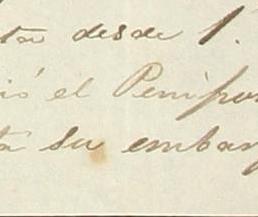 ta desde 1.
ió el Penipo
ta su embar